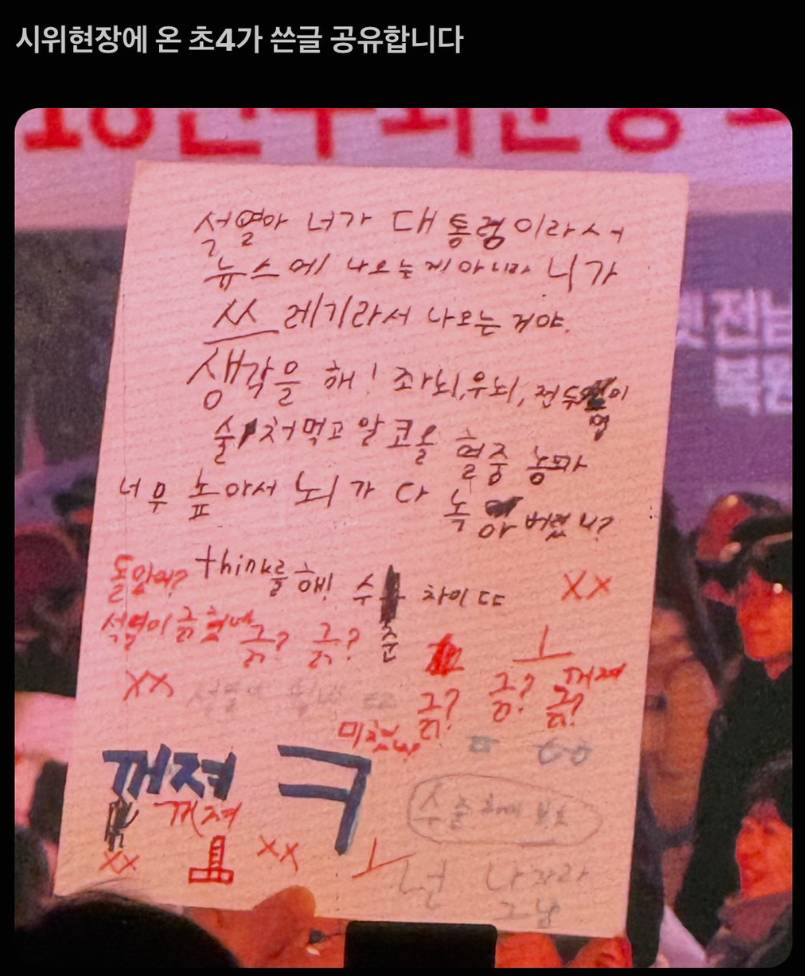 시위현장에 온 초4가 쓴글 공유합니다
석열아 너가 대통령이라서
뉴스에 나오는게 아니라 니가
쓰레기라서 나오는 거야.
생각을 해! 좌뇌, 우뇌, 전두엽이
술 처먹고 알코올 혈중 농도가
너무 높아서 뇌가 다 녹아 버렸니?
think를 해! 수준 차이 ㄸ
돌았어? XX
석열이 긁혔네 긁? 긁?
ㅗ
XX 긁? 긁? 긁? 꺼져
미쳤
꺼져 ㅋ
꺼져
XX XX ㅗ
넌 나가라
전남
복원